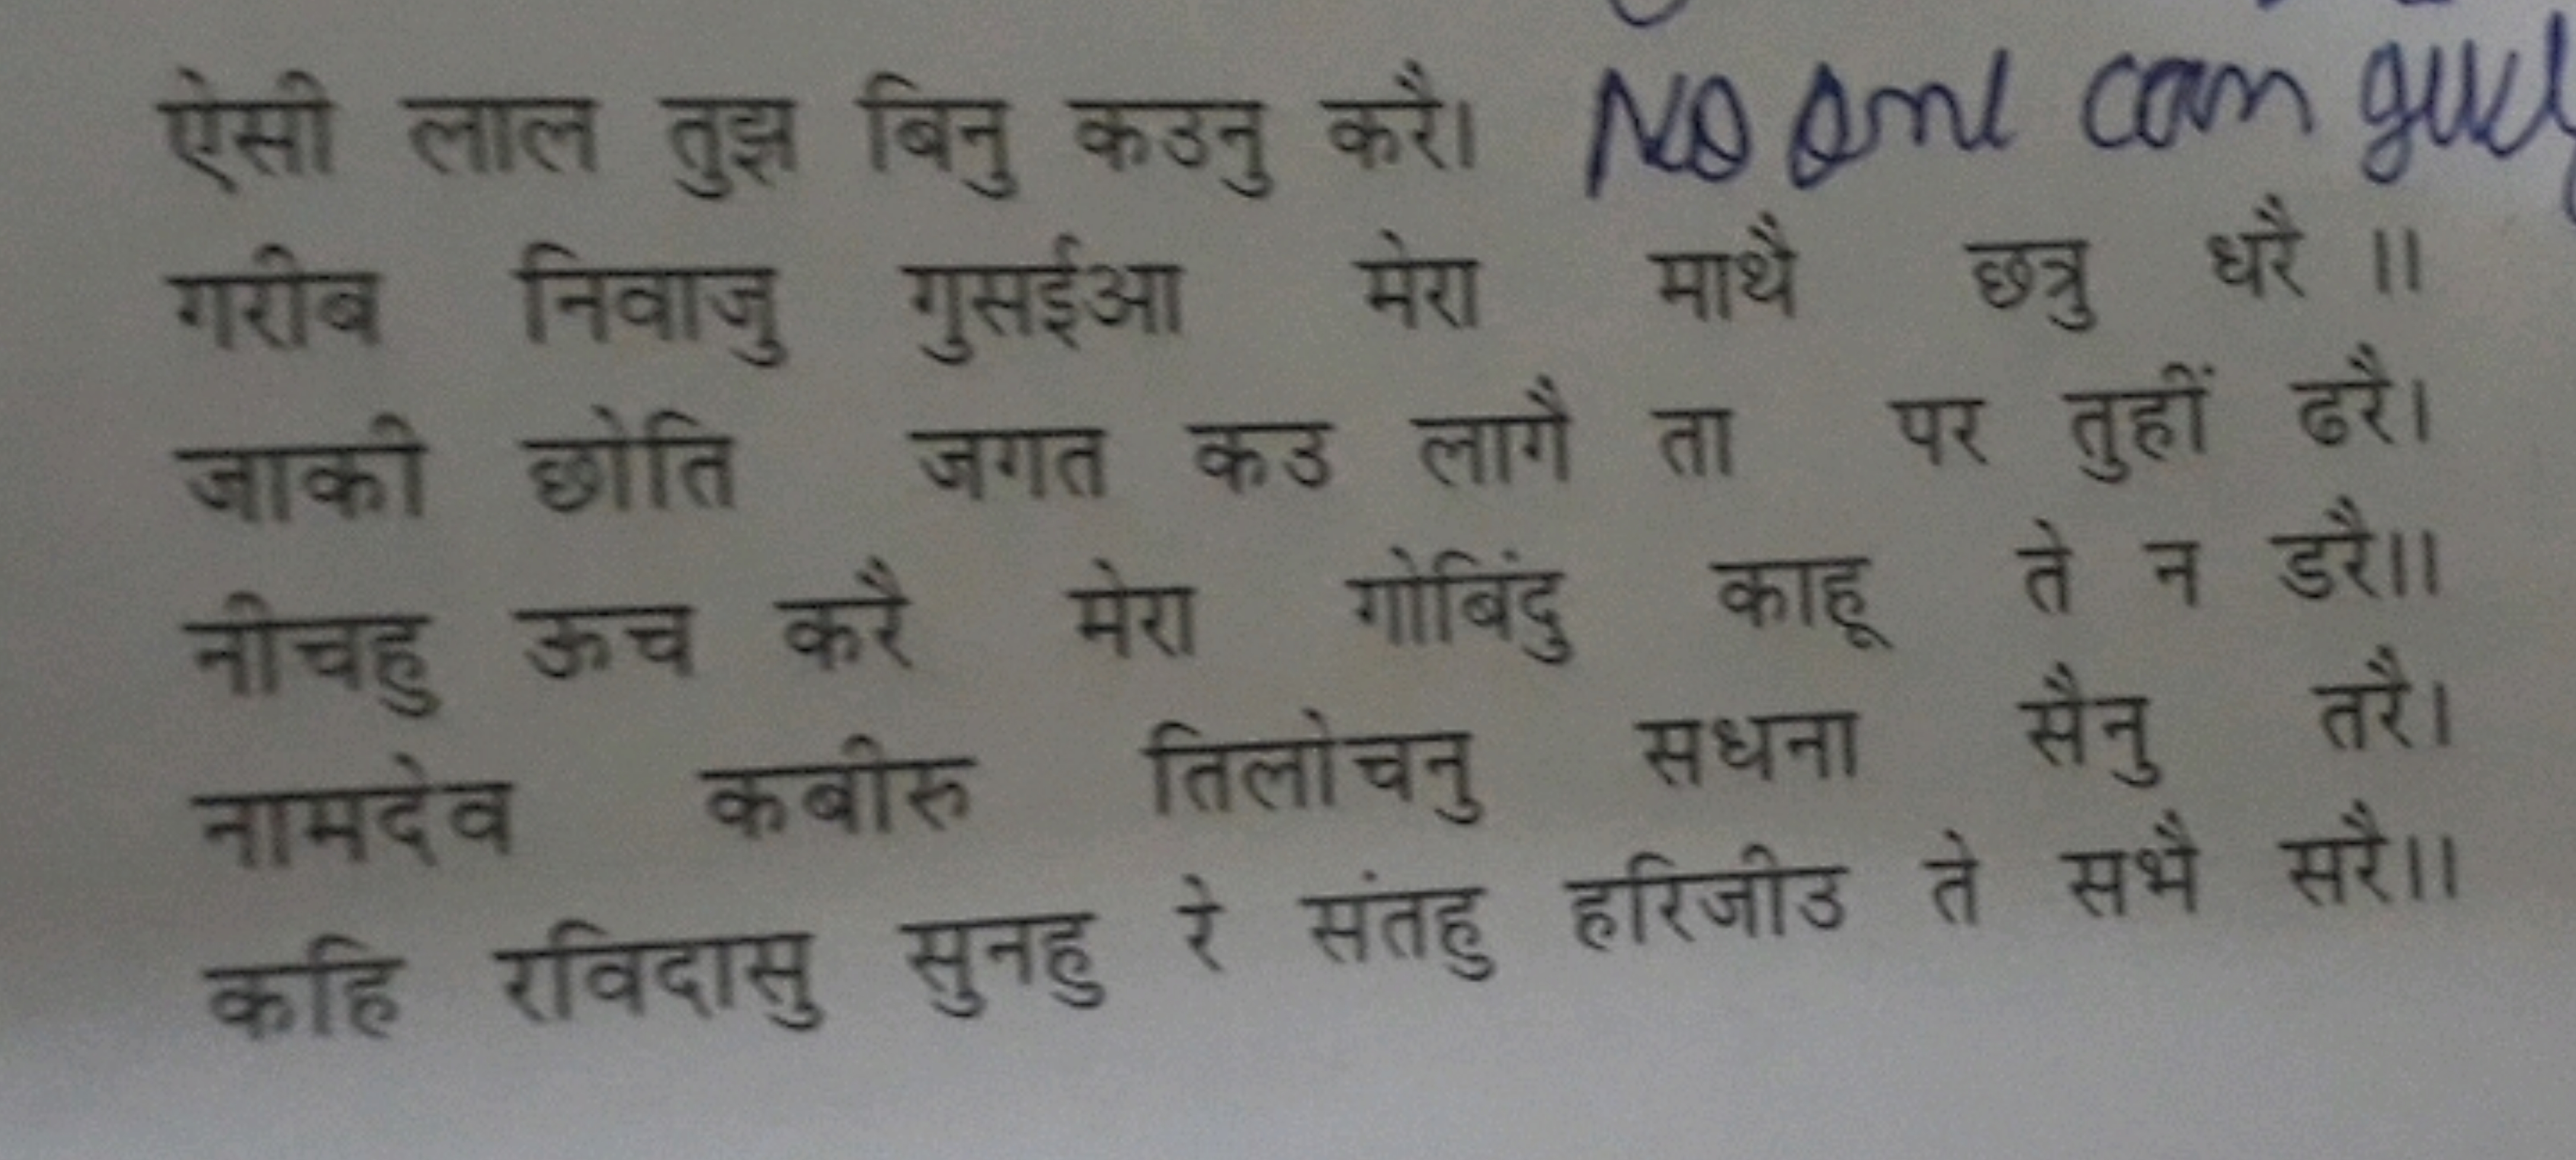 ऐसी लाल तुझ बिनु कउनु करै। No one can
गरीब निवाजु गुसईआ मेरा माथै छत्रु धरै ॥
जाकी छोति जगत कउ लागै ता पर तुहीं ढरै।
नीचहु ऊच करै मेरा गोबिंदु काहू ते न डरै॥
नामदेव कबीरु तिलोचनु सधना सैनु तरै।
कहि रविदासु सुनहु रे संतहु हरिजीउ ते सभै सरै॥